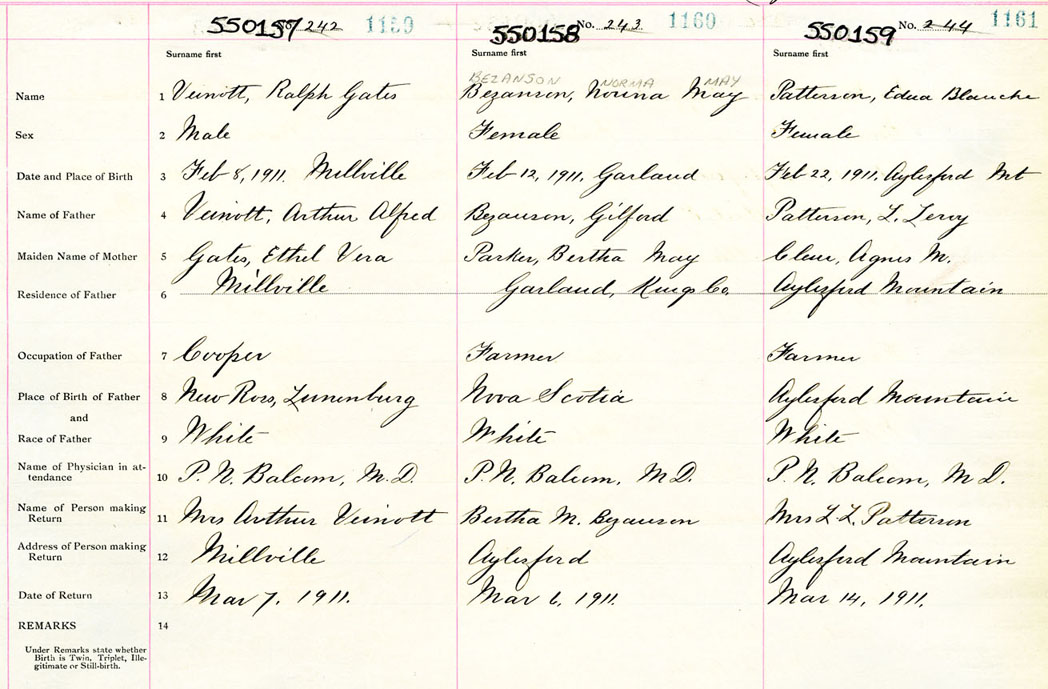 550157 No. 242 1159 550158 No. 243 1160 550159 No. 244 1161
Surname first Surname first Surname first
BEZANSON NORMA MAY
Name 1 Veinott, Ralph Gates Bezanson, Norma May Patterson, Edna Blanche
Sex 2 Male Female Female
Date and Place of Birth 3 Feb 8, 1911. Millville Feb 12, 1911, Garland Feb 22, 1911, Aylesford Mt
Name of Father 4 Veinott, Arthur Alfred Bezanson, Gilford Patterson, L. Leroy
Maiden Name of Mother 5 Gates, Ethel Vera Parker, Bertha May Agnes M.
Residence of Father 6 Millville Garland, Kings Co. Aylesford Mountain
Occupation of Father 7 Cooper Farmer Farmer
Place of Birth of Father 8 New Ross, Lunenburg Nova Scotia Aylesford Mountain
and
Race of Father 9 White White White
Name of Physician in at-
tendance 10 P. N. Balcom, M.D. P. N. Balcom, M.D. P. N. Balcom, M.D.
Name of Person making
Return 11 Mrs Arthur Veinott Bertha M. Bezanson Mrs L. L. Patterson
Address of Person making
Return 12 Millville Aylesford Aylesford Mountain
Date of Return 13 Mar 7, 1911. Mar 6, 1911. Mar 14, 1911.
REMARKS 14
Under Remarks state whether
Birth is Twin, Triplet, Ille-
gitimate or Still-birth.